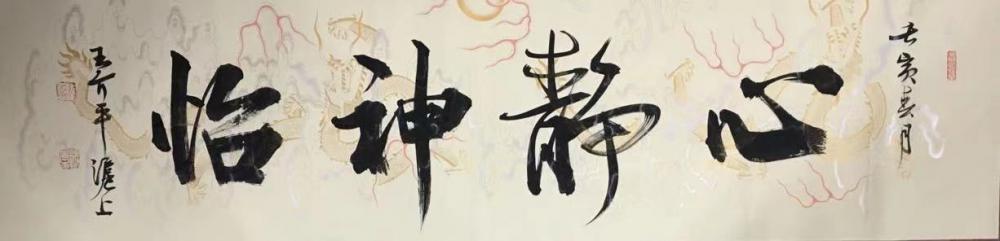 壬寅春月
心静神怡
王介平滬上